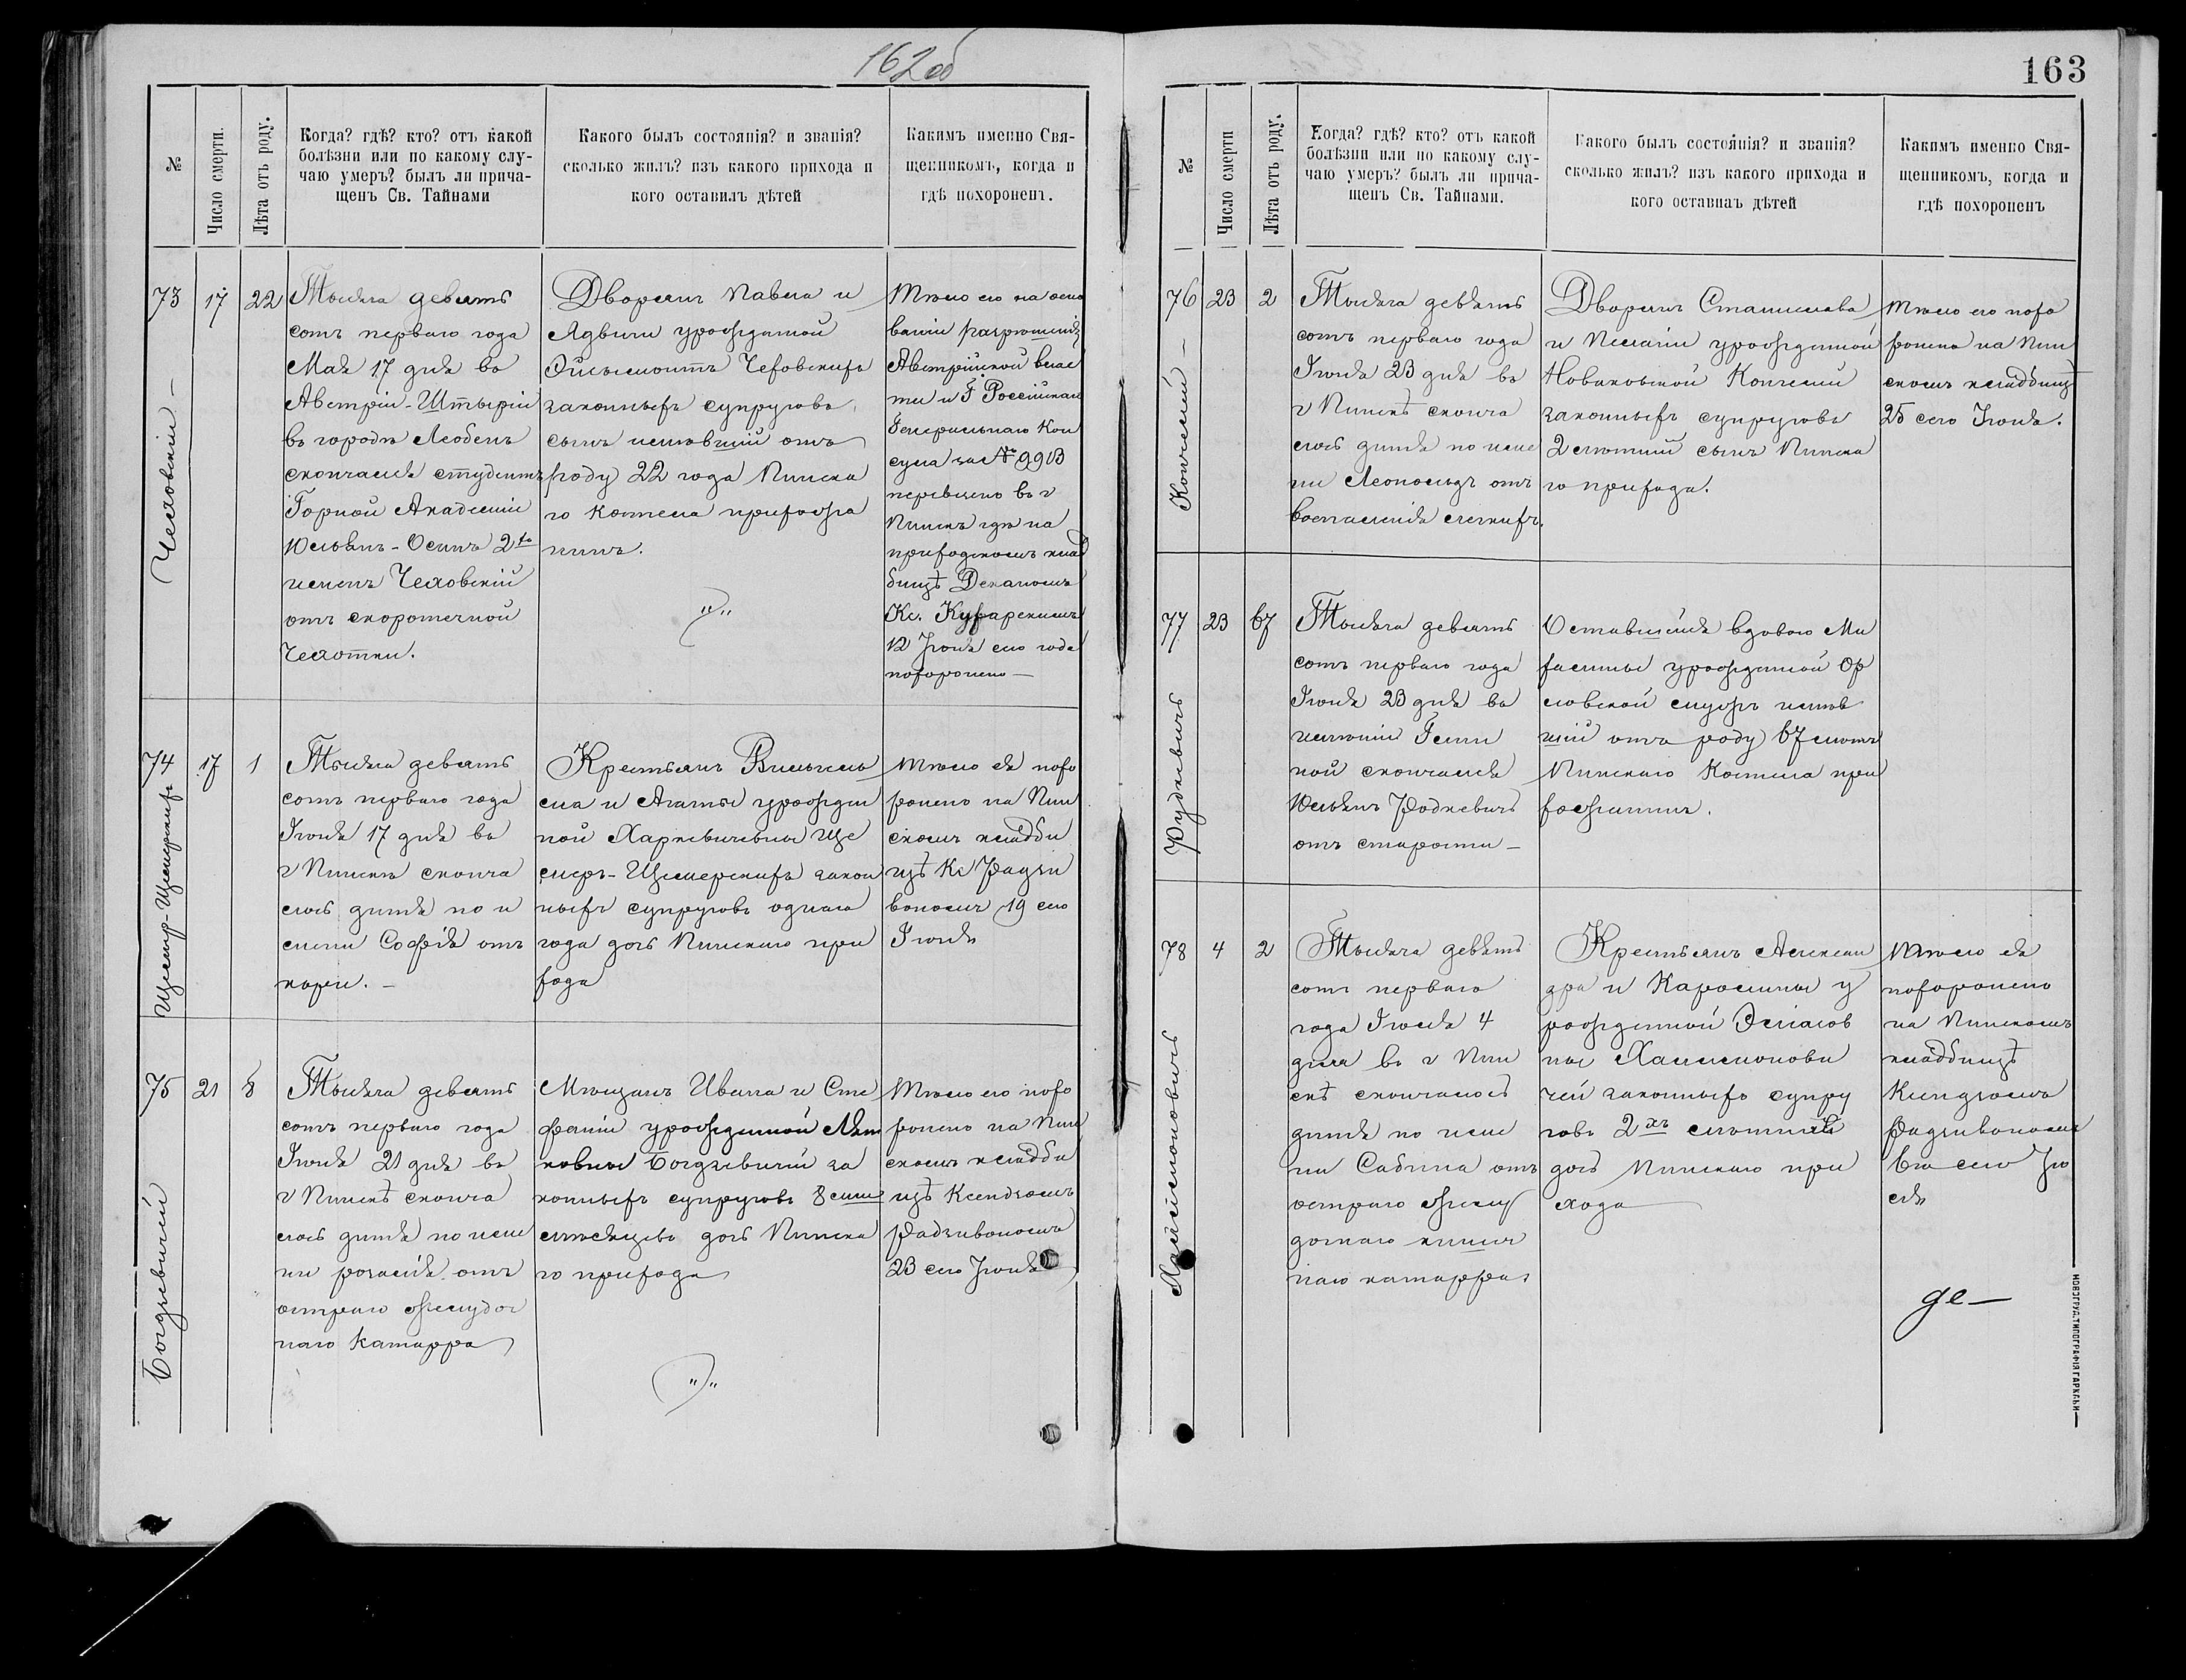 162 об
№
Число смерти.
Лѣта отъ роду.
Когда? гдѣ? кто? отъ какой
болѣзни или по какому слу-
чаю умеръ? былъ ли прича-
щенъ Св. Тайнами
Какого былъ состоянія? и званія?
сколько жилъ? изъ какого прихода и
кого оставилъ дѣтей
Какимъ именно Свя-
щенникомъ, когда и
гдѣ похороненъ.
73
17
22
Чеховскій —
Тысяча девять
сотъ перваго года
Мая 17 дня во
Австріи-Штыріи
въ городѣ Леобенъ
скончался студентъ
Горной Академіи
Юльянъ-Осипъ 2хъ
именъ Чеховскій
отъ скоротечной
чахотки.
Дворянъ Павла и
Ядвиги урожданной
Чеховскихъ
законныхъ супруговъ
сынъ имѣвшій отъ
роду 22 года Пинска
го костела прихожа
нинъ.
Тѣло его на осно
ваніи разрѣшенія
Австрійской влас
ти и Г Россійскаго
Генеральнаго Кон
сула за № 993
перевезено въ г
Пинскъ гдѣ на
приходскомъ клад
бищѣ Деканомъ
Кс. Кухарскимъ
12 Іюня сего года
похоронено —
74
17
1
Щемеръ-Щемерскихъ
Тысяча девять
сотъ перваго года
Іюня 17 дня въ
г Пинскѣ сконча
лось дитя по и
мени Софія отъ
кори. —
Крестьянъ Вильгель
ма и Агаты урожден
ной Харкевичевны Ще
меръ-Щемерскихъ закон
ныхъ супруговъ однаго
года дочь Пинскаго при
хода
Тѣло ея похо
ронено на Пин
скомъ кладби
щѣ Кс Радзи
вономъ 19 сего
Іюня
75
21
8
Богдзевичій
Тысяча девять
сотъ перваго года
Іюня 21 дня въ
г Пинскѣ сконча
лось дитя по име
ни розалія отъ
остраго желудоч
наго катарра
Мѣщанъ Ивана и Сте
фаніи урожденной
Богдзевичей за
конныхъ супруговъ 8 сми
мѣсяцевъ дочь Пинска
го прихода
Тѣло его похо
ронено на Пин
скомъ кладби
щѣ Ксендзомъ
Радзивономъ
23 сего Іюня
163
№
Число смерти
Лѣта отъ роду.
Когда? гдѣ? кто? отъ какой
болѣзни или по какому слу-
чаю умеръ? былъ ли прича-
щенъ Св. Тайнами.
Какого былъ состоянія? и званія?
сколько жилъ? изъ какого прихода и
кого оставилъ дѣтей
Какимъ именно Свя-
щенникомъ, когда и
гдѣ похороненъ
76
23
2
Тысяча девять
сотъ перваго года
Іюня 23 дня въ
г Пинскѣ сконча
лось дитя по име
ни Леопольдъ отъ
воспаленія легкихъ.
Дворянъ Станислава
и Пелагіи урожденной
Новаковской
законныхъ супруговъ
2 лѣтній сынъ Пинска
го прихода.
Тѣло его похо
ронено на Пин
скомъ кладбищѣ
25 сего Іюня.
77
23
67
Рудкевичъ
Тысяча девять
сотъ перваго года
Іюня 23 дня во
имѣніи
скончался
Юльянъ Родкевичъ
отъ старости —
Оставшійся вдовою Ми
халины урожденной Ор
ловской мужъ имѣв
шій отъ роду 67 лѣтъ
Пинскаго Костела при
хожанинъ.
78
4
2
Халимоновичъ
Тысяча девять
сотъ перваго
года Іюля 4
дня въ г Пин
скѣ скончалось
дитя по име
ни Сабина отъ
остраго желу
дочнаго кишеч
наго катарра
Крестьянъ Алексан
дра и Каролины у
рожденной
Халимонови
чей законныхъ супру
говъ 2хъ лѣтняя
дочь Пинскаго при
хода
Тѣло ея
похоронено
на Пинскомъ
кладбищѣ
Ксендзомъ
Радзивономъ
6го сего Ію
ля
де—
НОВОГРУД. ТИПОГРАФІЯ ГАРКАВИ